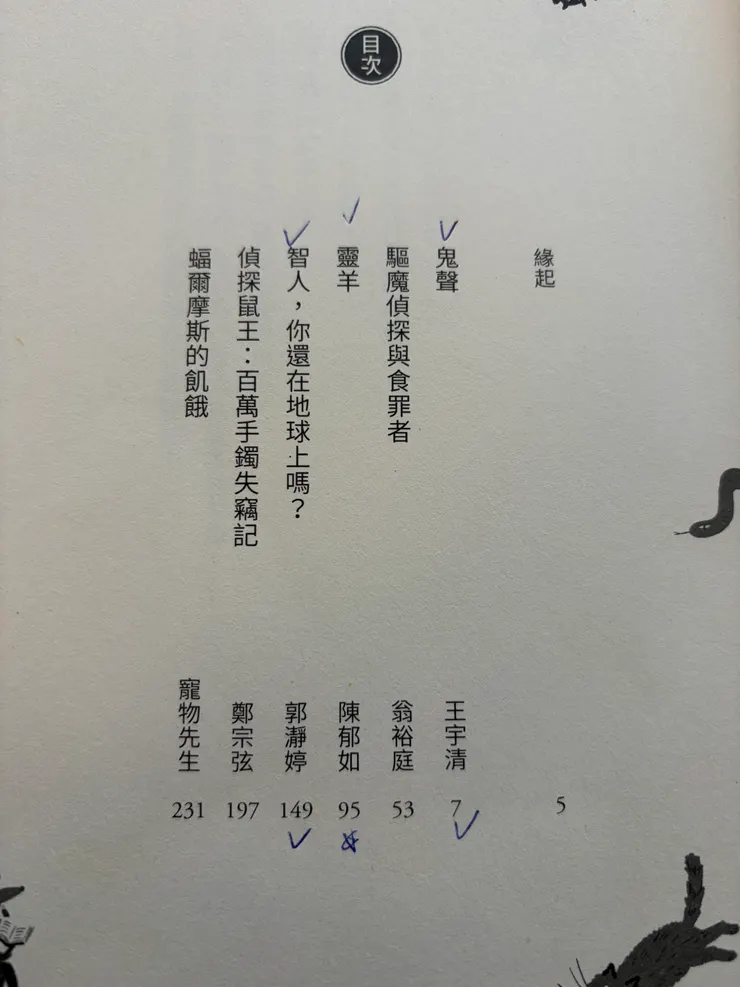 目次
緣起 5
鬼聲 王宇清 7
驅魔偵探與食罪者 翁裕庭 53
靈羊 陳郁如 95
智人，你還在地球上嗎？ 郭瀞婷 149
偵探鼠王：百萬手鐲失竊記 鄭宗弦 197
蝠爾摩斯的飢餓 寵物先生 231